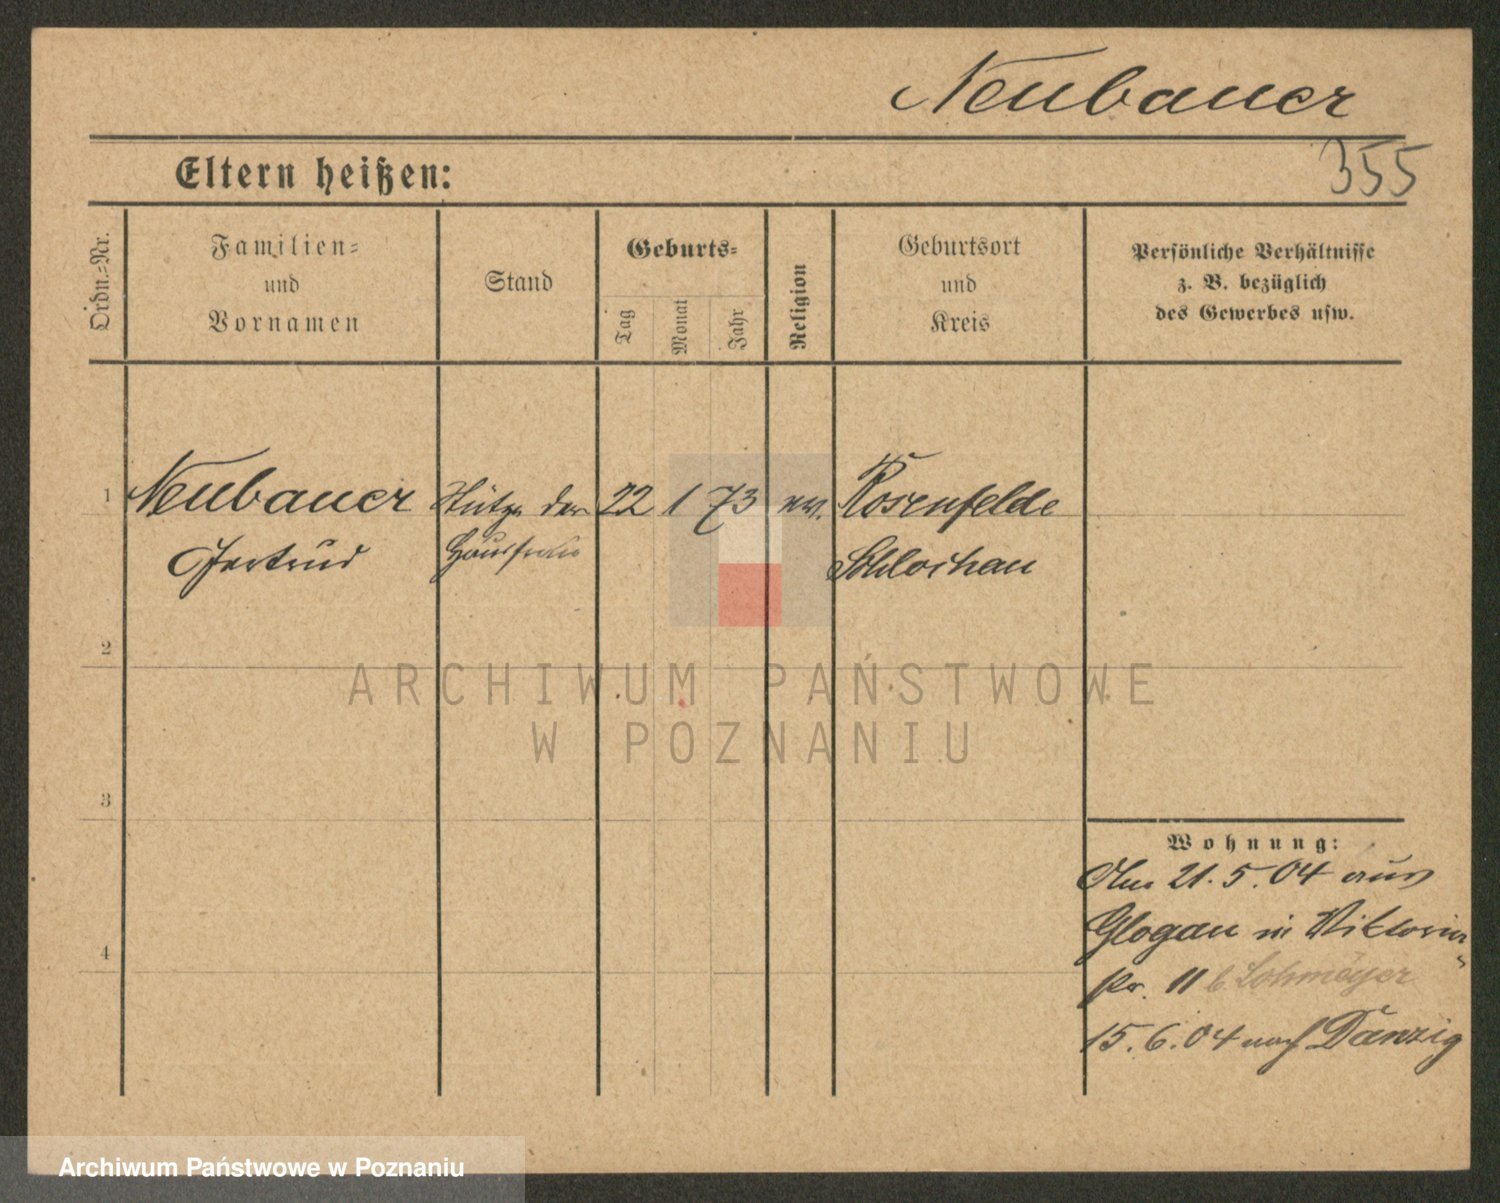 Neubauer
355
Eltern heißen:
Ordn.=Nr.
Familien=
und
Vornamen
Stand
Geburts=
Tag
Monat
Jahr
Religion
Geburtsort
und
Kreis
Persönliche Verhältnisse
z. B. bezüglich
des Gewerbes usw.
1 Neubauer Stütze der 22 1 73 ev. Rosenfelde
Gertrud Hausfrau Schlochau
2
3
4
Wohnung:
Am 21.5.04 aus
Glogau in Viktoria
str. 11 b Lohmeyer
15.6.04 nach Danzig
ARCHIWUM PAŃSTWOWE
W POZNANIU
Archiwum Państwowe w Poznaniu